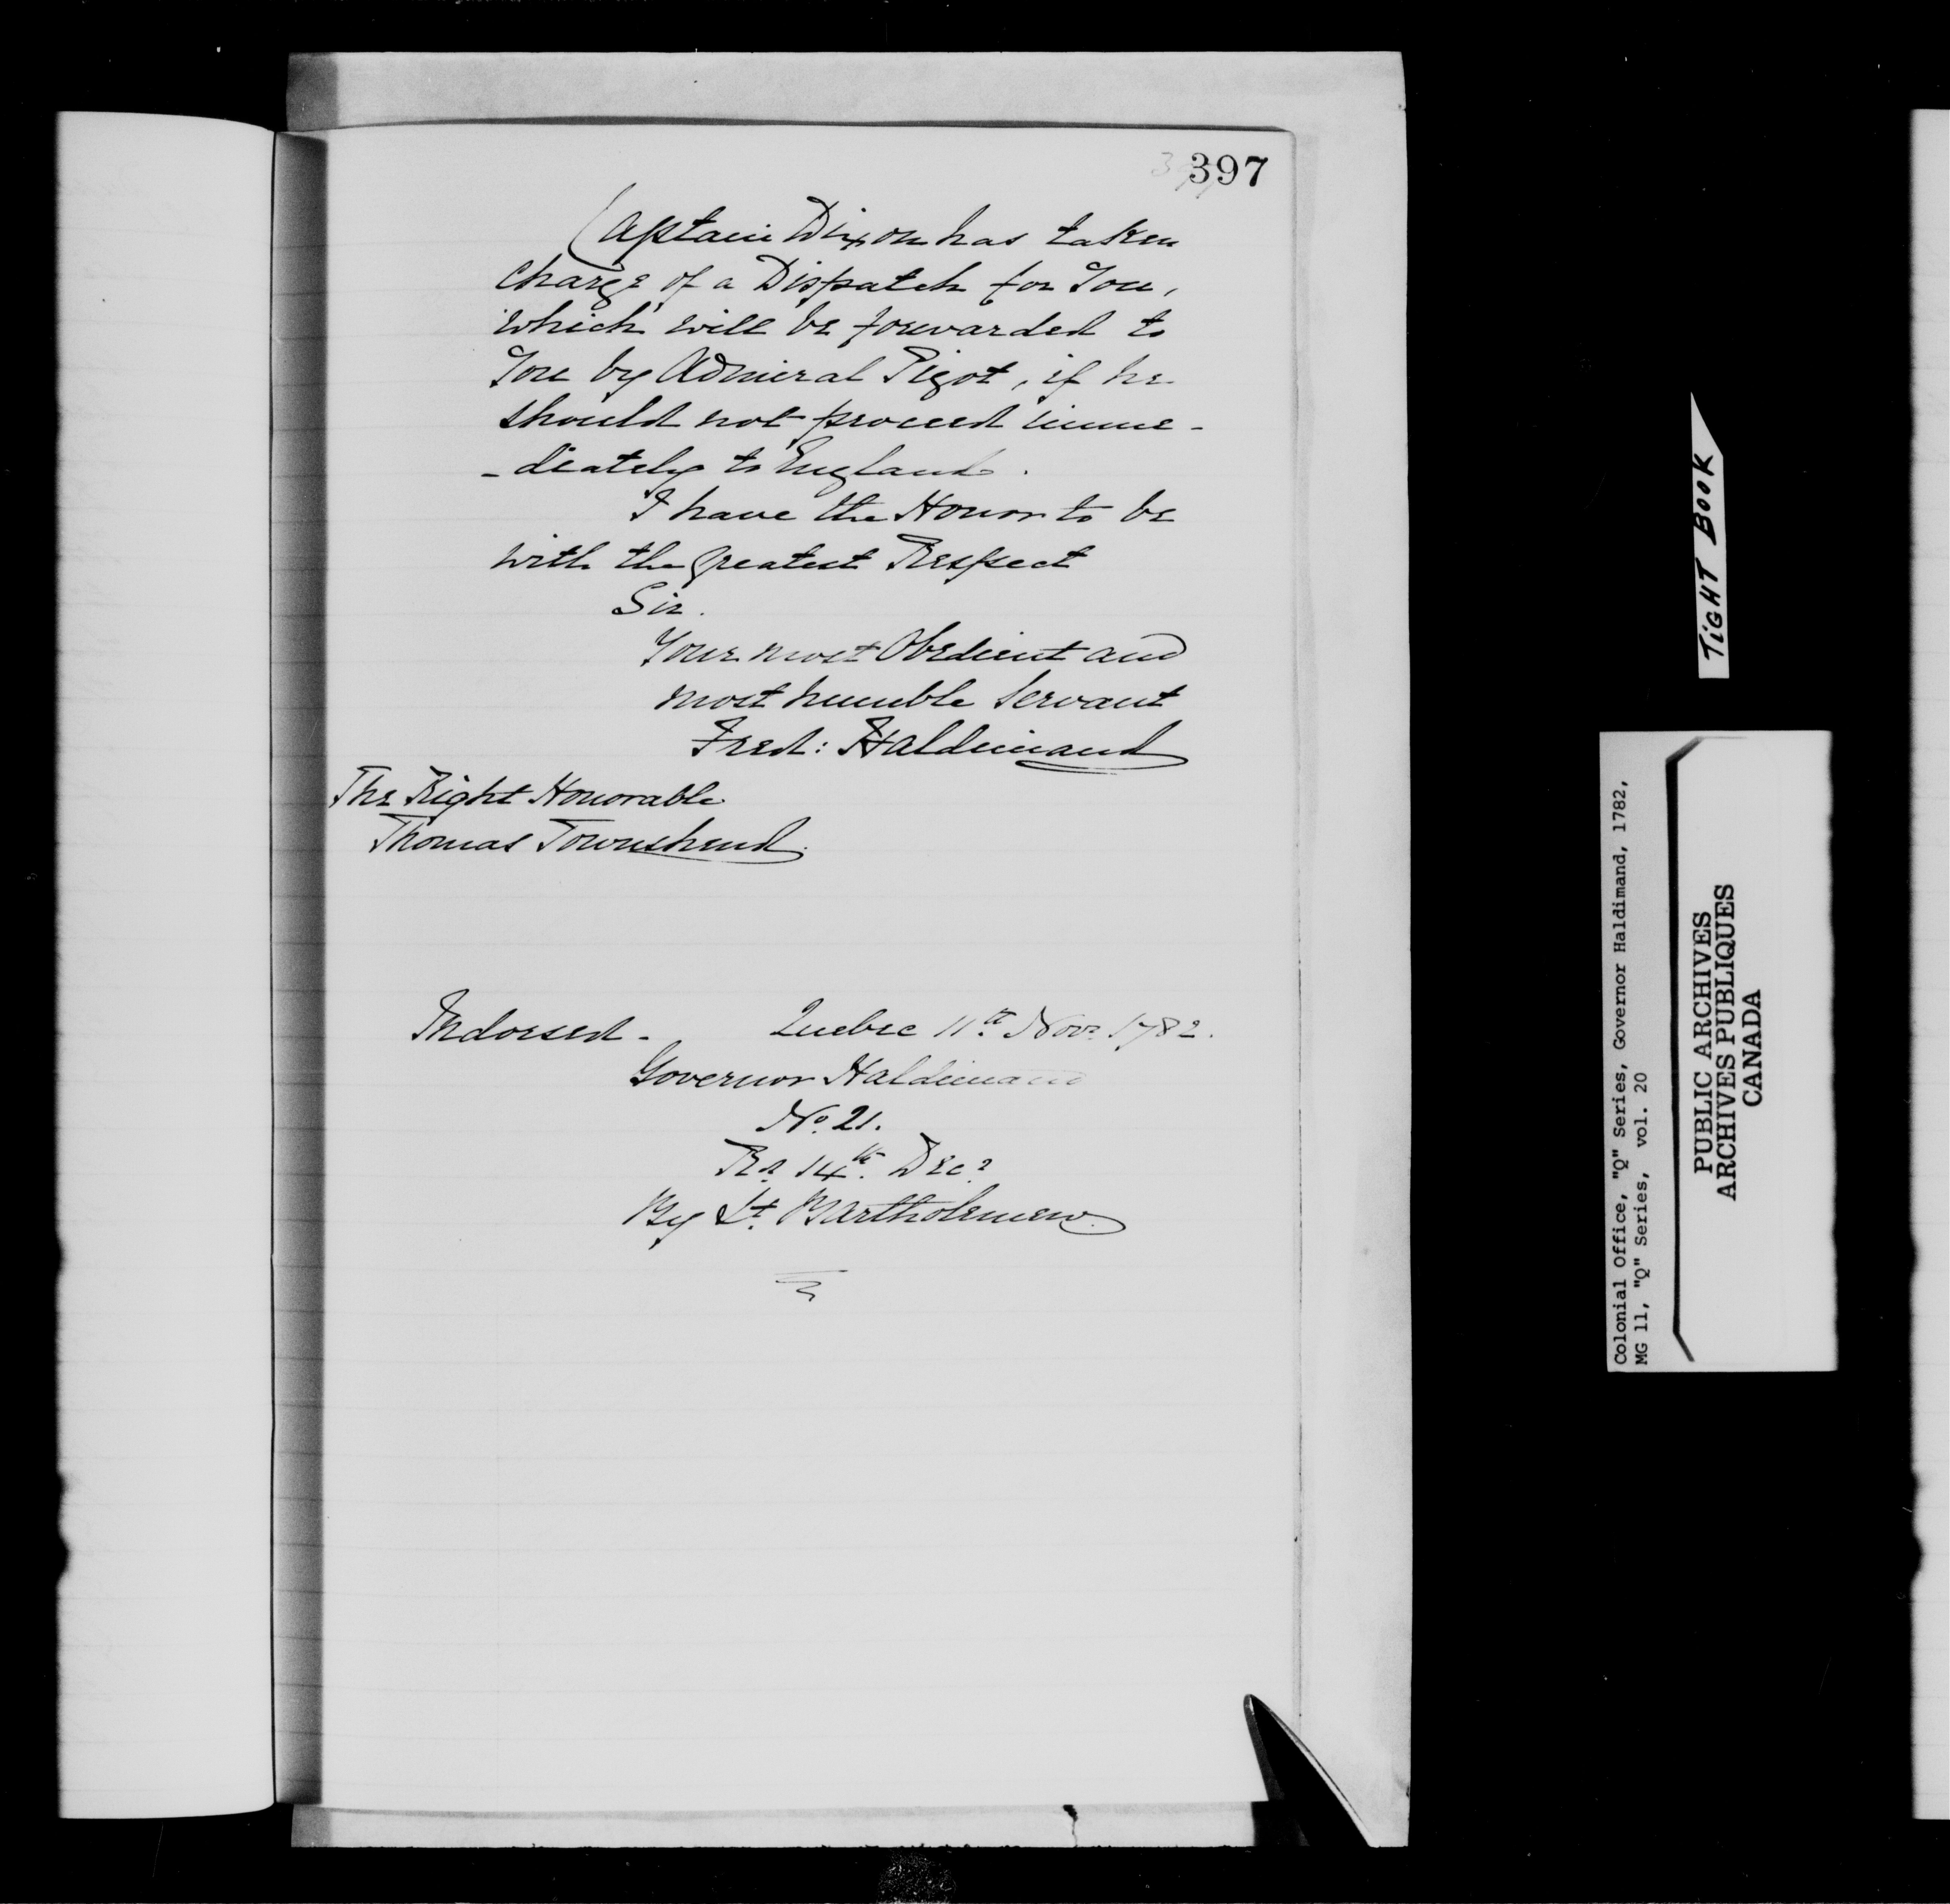 397
Captain Dixon has taken
charge of a Dispatch for You,
which will be forwarded to
You by Admiral Pigot, if he
should not proceed imme-
-diately to England.
I have the Honor to be
with the greatest Respect
Sir.
Your most Obedient and
most humble Servant
Fred: Haldimand
The Right Honorable
Thomas Townshend.
Indorsed - Quebec 11th Novr 1782.
Governor Haldimand
No. 21.
Rd 14th Decr
By Lt. Bartholemew.
TIGHT BOOK
Colonial Office, "Q" Series, Governor Haldimand, 1782,
MG 11, "Q" Series, vol. 20
PUBLIC ARCHIVES
ARCHIVES PUBLIQUES
CANADA